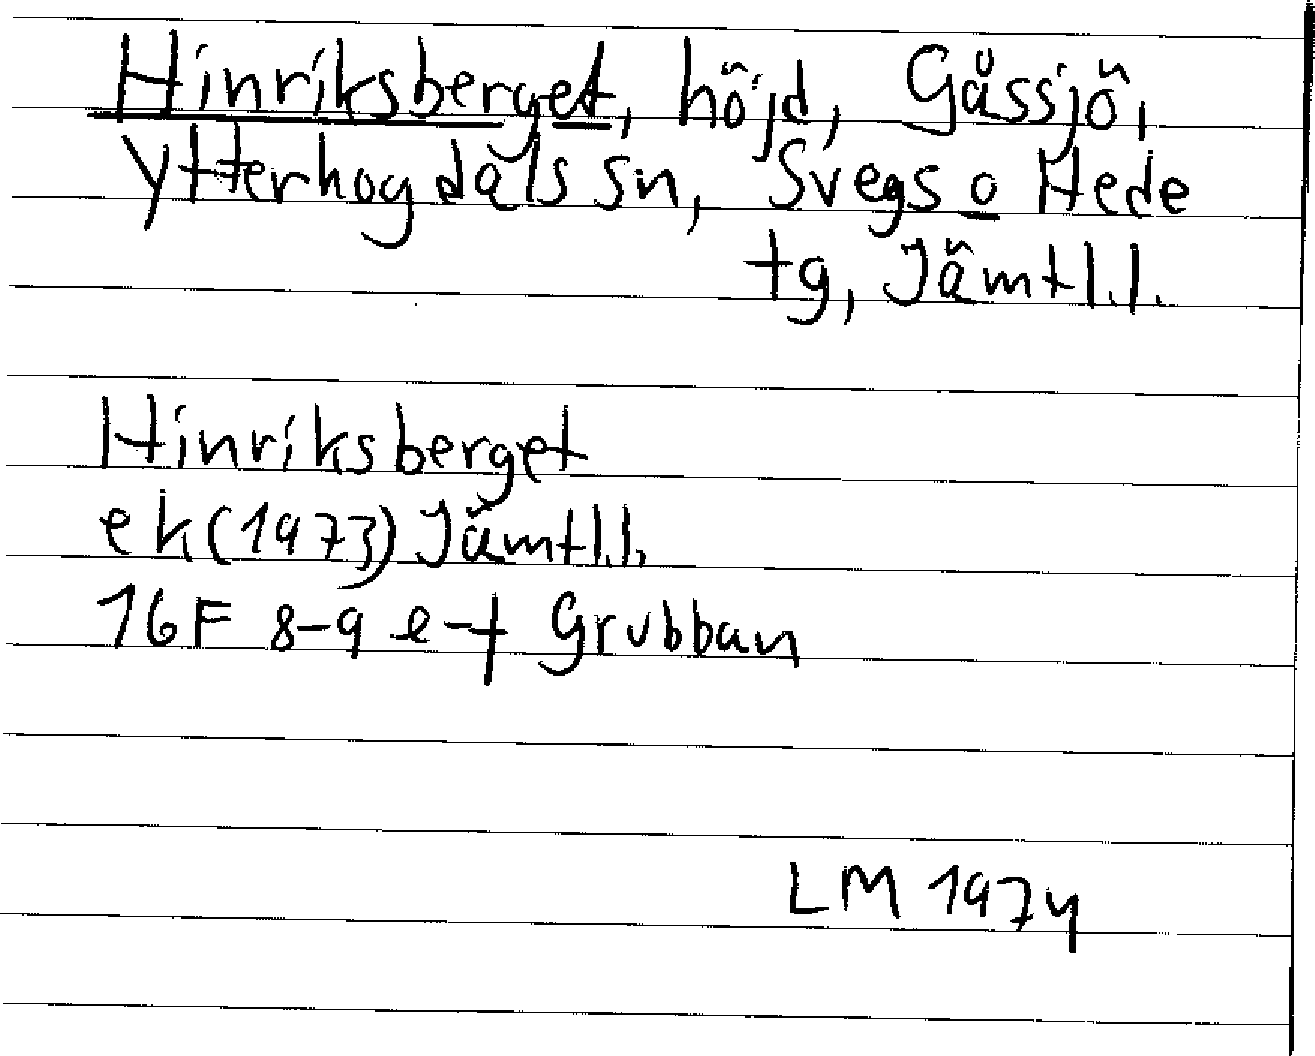 Hinriksberget, höjd, Gåssjö,
Ytterhogdals sn, Svegs o Hede
tg, Jämtl.l.
Hinriksberget
ek (1973) Jämtl.l.
16F 8-9 e-f Grubban
LM 1974